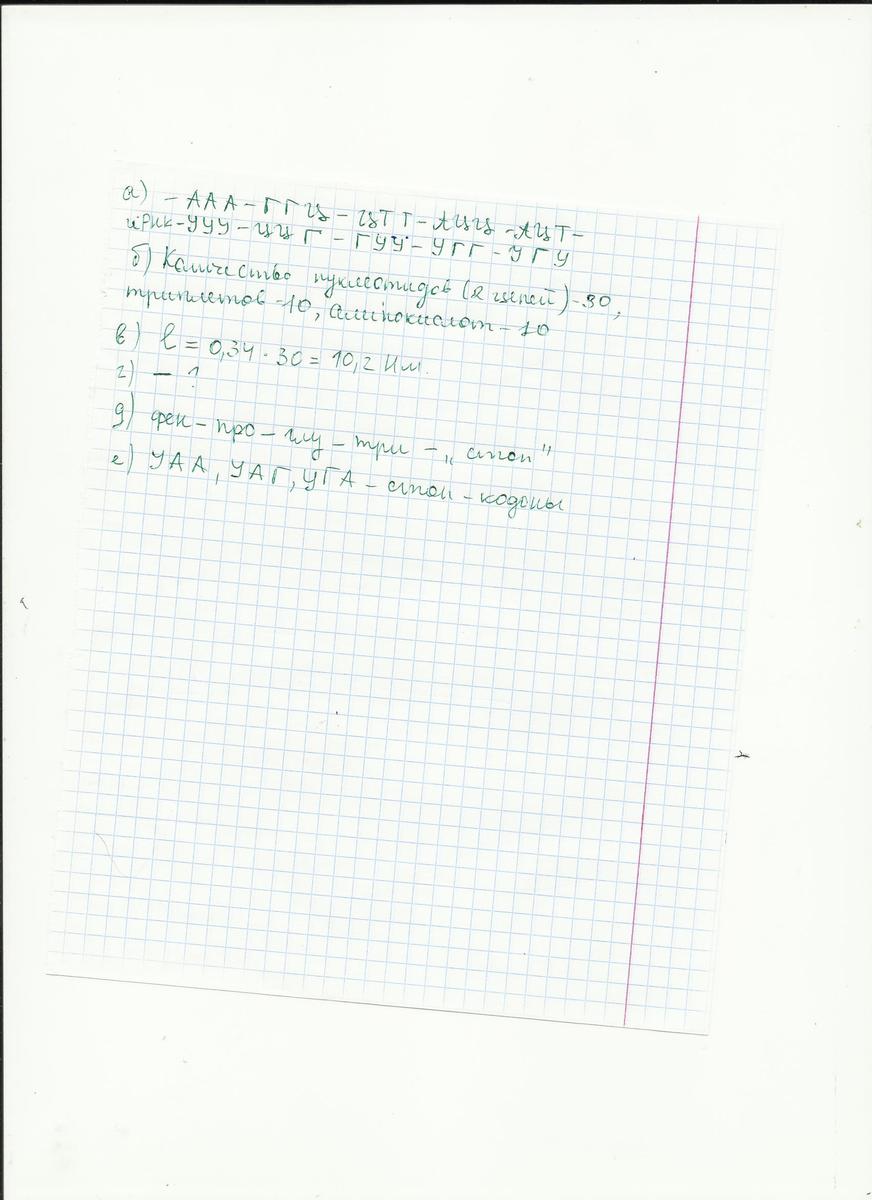 а) – ААА – ГГЦ – ЦТТ – АЦЦ – АЦТ –
иРНК – УУУ – ЦЦГ – ГУУ – УГГ – УГУ
б) Количество нуклеотидов (2 цепей) – 30,
триплетов – 10, аминокислот – 10
в) l = 0,34 · 30 = 10,2 Нм.
г) – ?
д) фен – про – глу – три – „ стоп "
е) УАА, УАГ, УГА – стоп – кодоны